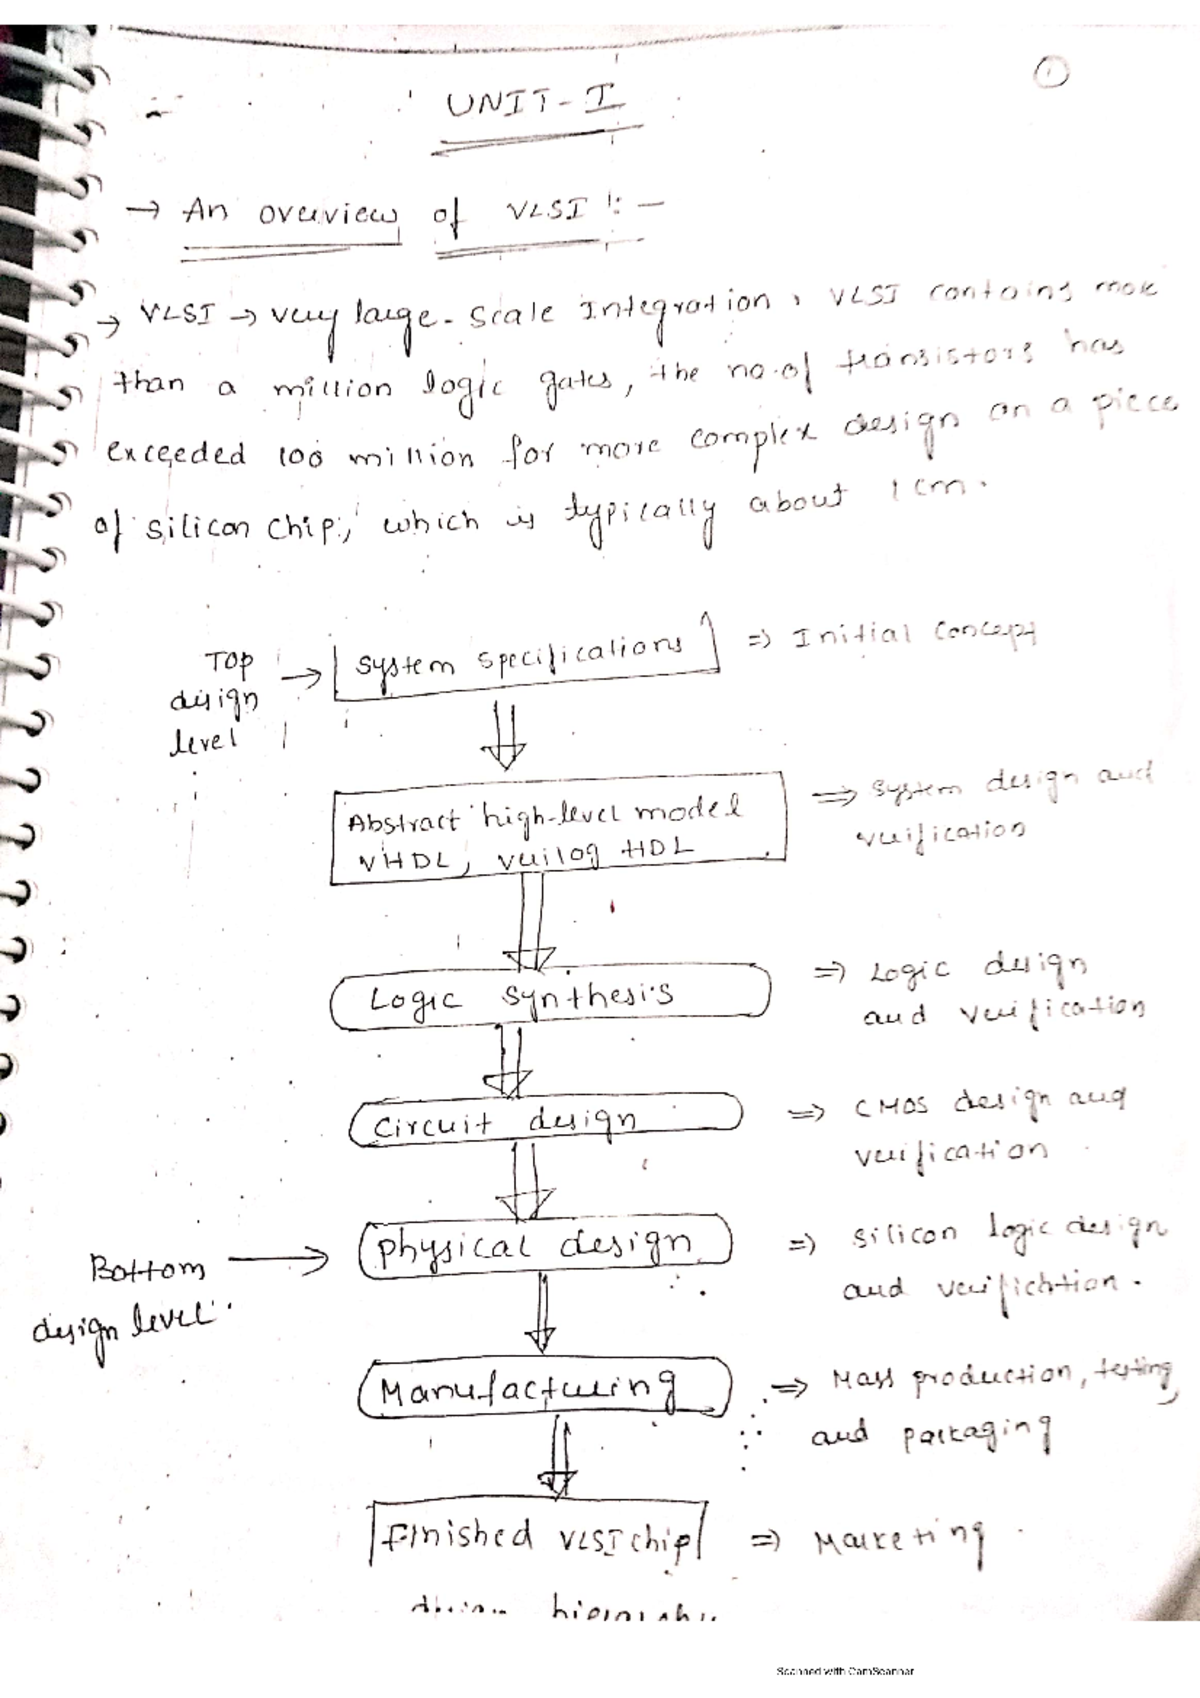 1
UNIT-I
→ An overview of VLSI :-
→ VLSI → very large-scale Integration, VLSI contains more
than a million logic gates, the no.of transistors has
exceeded 100 million for more complex design on a piece
of silicon chip, which is typically about 1cm.
Top design level → System specifications ⇒ Initial concept
Abstract high-level model ⇒ System design and
VHDL, verilog HDL verification
Logic synthesis ⇒ Logic design
and verification
Circuit design ⇒ CMOS design and
verification
Bottom design level. → physical design ⇒ silicon logic design
and verifichtion.
Manufacturing ⇒ Mass production, testing,
and packaging
Finished VLSI chip ⇒ Marketing.
hierarchy
Scanned with CamScanner